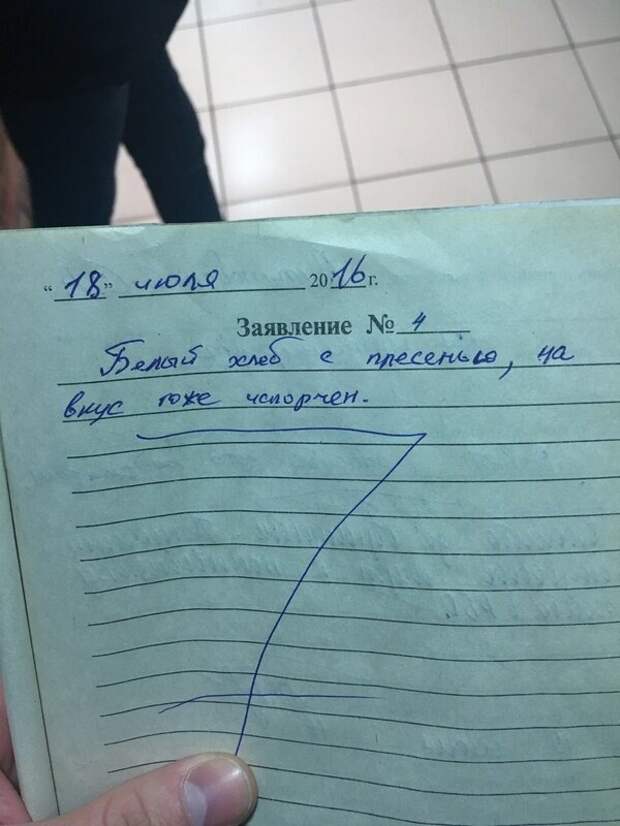 "18" июля 2016 г.
Заявление № 4
Белый хлеб с пресенью, на
вкус тоже испорчен.